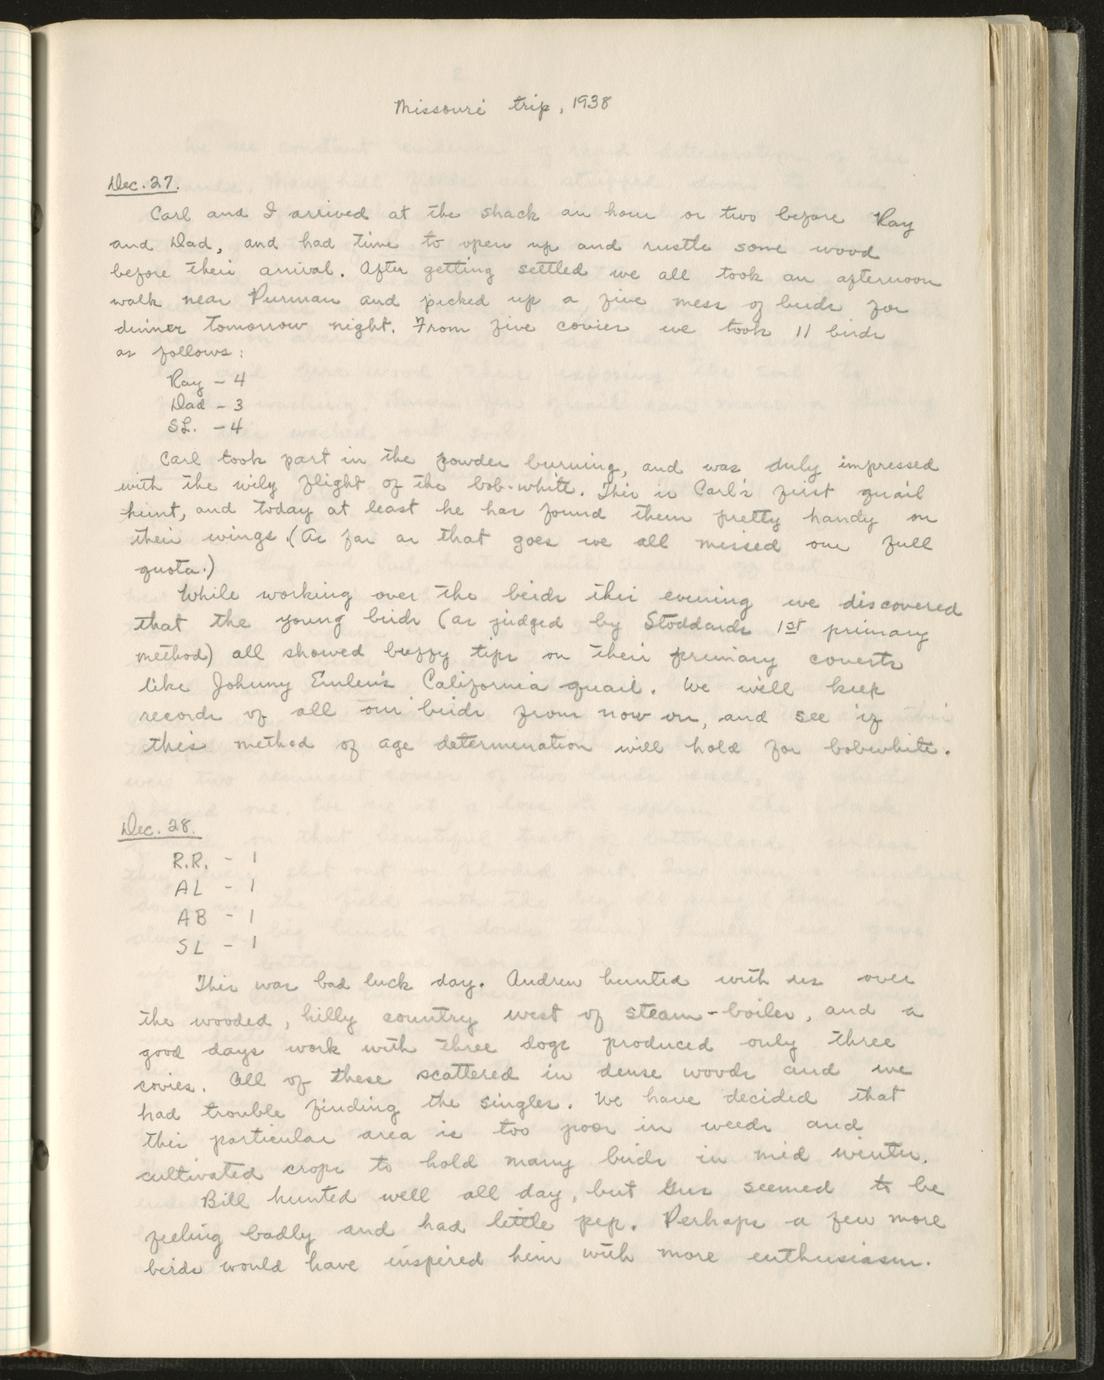 Missouri trip, 1938
Dec. 27.
Carl and I arrived at the shack an hour or two before Ray
and Dad, and had time to open up and rustle some wood
before their arrival. After getting settled we all took an afternoon
walk near Purman and picked up a five mess of birds for
dinner tomorrow night. From five covies we took 11 birds
as follows:
Ray - 4
Dad - 3
SL. - 4
Carl took part in the powder burning, and was duly impressed
with the wily flight of the bob-white. This is Carl's first quail
hunt, and today at least he has found them pretty handy on
their wings. (As far as that goes we all missed our full
quota.)
While working over the birds this evening we discovered
that the young birds (as judged by Stoddards 1st primary
method) all showed buffy tips on their primary coverts
like Johnny Emlen's California quail. We will keep
records of all our birds from now on, and see if
this method of age determination will hold for bobwhite.
Dec. 28.
R.R. - 1
AL - 1
AB - 1
SL - 1
This was bad luck day. Andrew hunted with us over
the wooded, hilly country west of steam-boiler, and a
good days work with three dogs produced only three
covies. All of these scattered in dense woods and we
had trouble finding the singles. We have decided that
this particular area is too poor in weeds and
cultivated crops to hold many birds in mid winter.
Bill hunted well all day, but Gus seemed to be
feeling badly and had little pep. Perhaps a few more
birds would have inspired him with more enthusiasm.